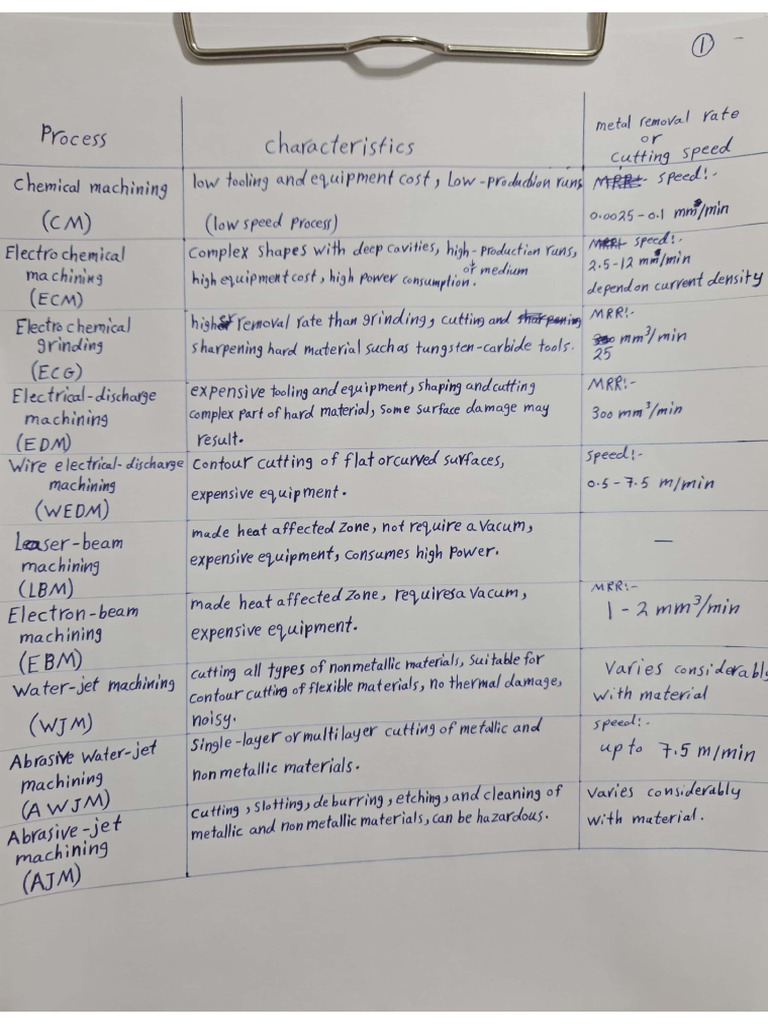 ①
Process
characteristics
metal removal rate
or
cutting speed
Chemical machining
(CM)
low tooling and equipment cost, Low-production runs
(low speed process)
speed:-
0.0025-0.1 mm/min
Electrochemical
machining
(ECM)
Complex shapes with deep cavities, high-production runs,
high equipment cost, high power consumption. or medium
speed:-
2.5-12 mm/min
depend on current density
Electrochemical
grinding
(ECG)
high removal rate than grinding, cutting and
sharpening hard material such as tungsten-carbide tools.
MRR:-
mm³/min
25
Electrical-discharge
machining
(EDM)
expensive tooling and equipment, shaping and cutting
complex part of hard material, some surface damage may
result.
MRR:-
300 mm³/min
Wire electrical-discharge
machining
(WEDM)
contour cutting of flat or curved surfaces,
expensive equipment.
speed:-
0.5-7.5 m/min
Laser-beam
machining
(LBM)
made heat affected zone, not require a vacum,
expensive equipment, consumes high power.
—
Electron-beam
machining
(EBM)
made heat affected zone, requires a vacum,
expensive equipment.
MRR:-
1-2 mm³/min
Water-jet machining
(WJM)
cutting all types of nonmetallic materials, suitable for
contour cutting of flexible materials, no thermal damage,
noisy.
Varies considerably
with material
Abrasive water-jet
machining
(AWJM)
single-layer or multilayer cutting of metallic and
nonmetallic materials.
speed:-
up to 7.5 m/min
Abrasive-jet
machining
(AJM)
cutting, slotting, deburring, etching, and cleaning of
metallic and nonmetallic materials, can be hazardous.
Varies considerably
with material.